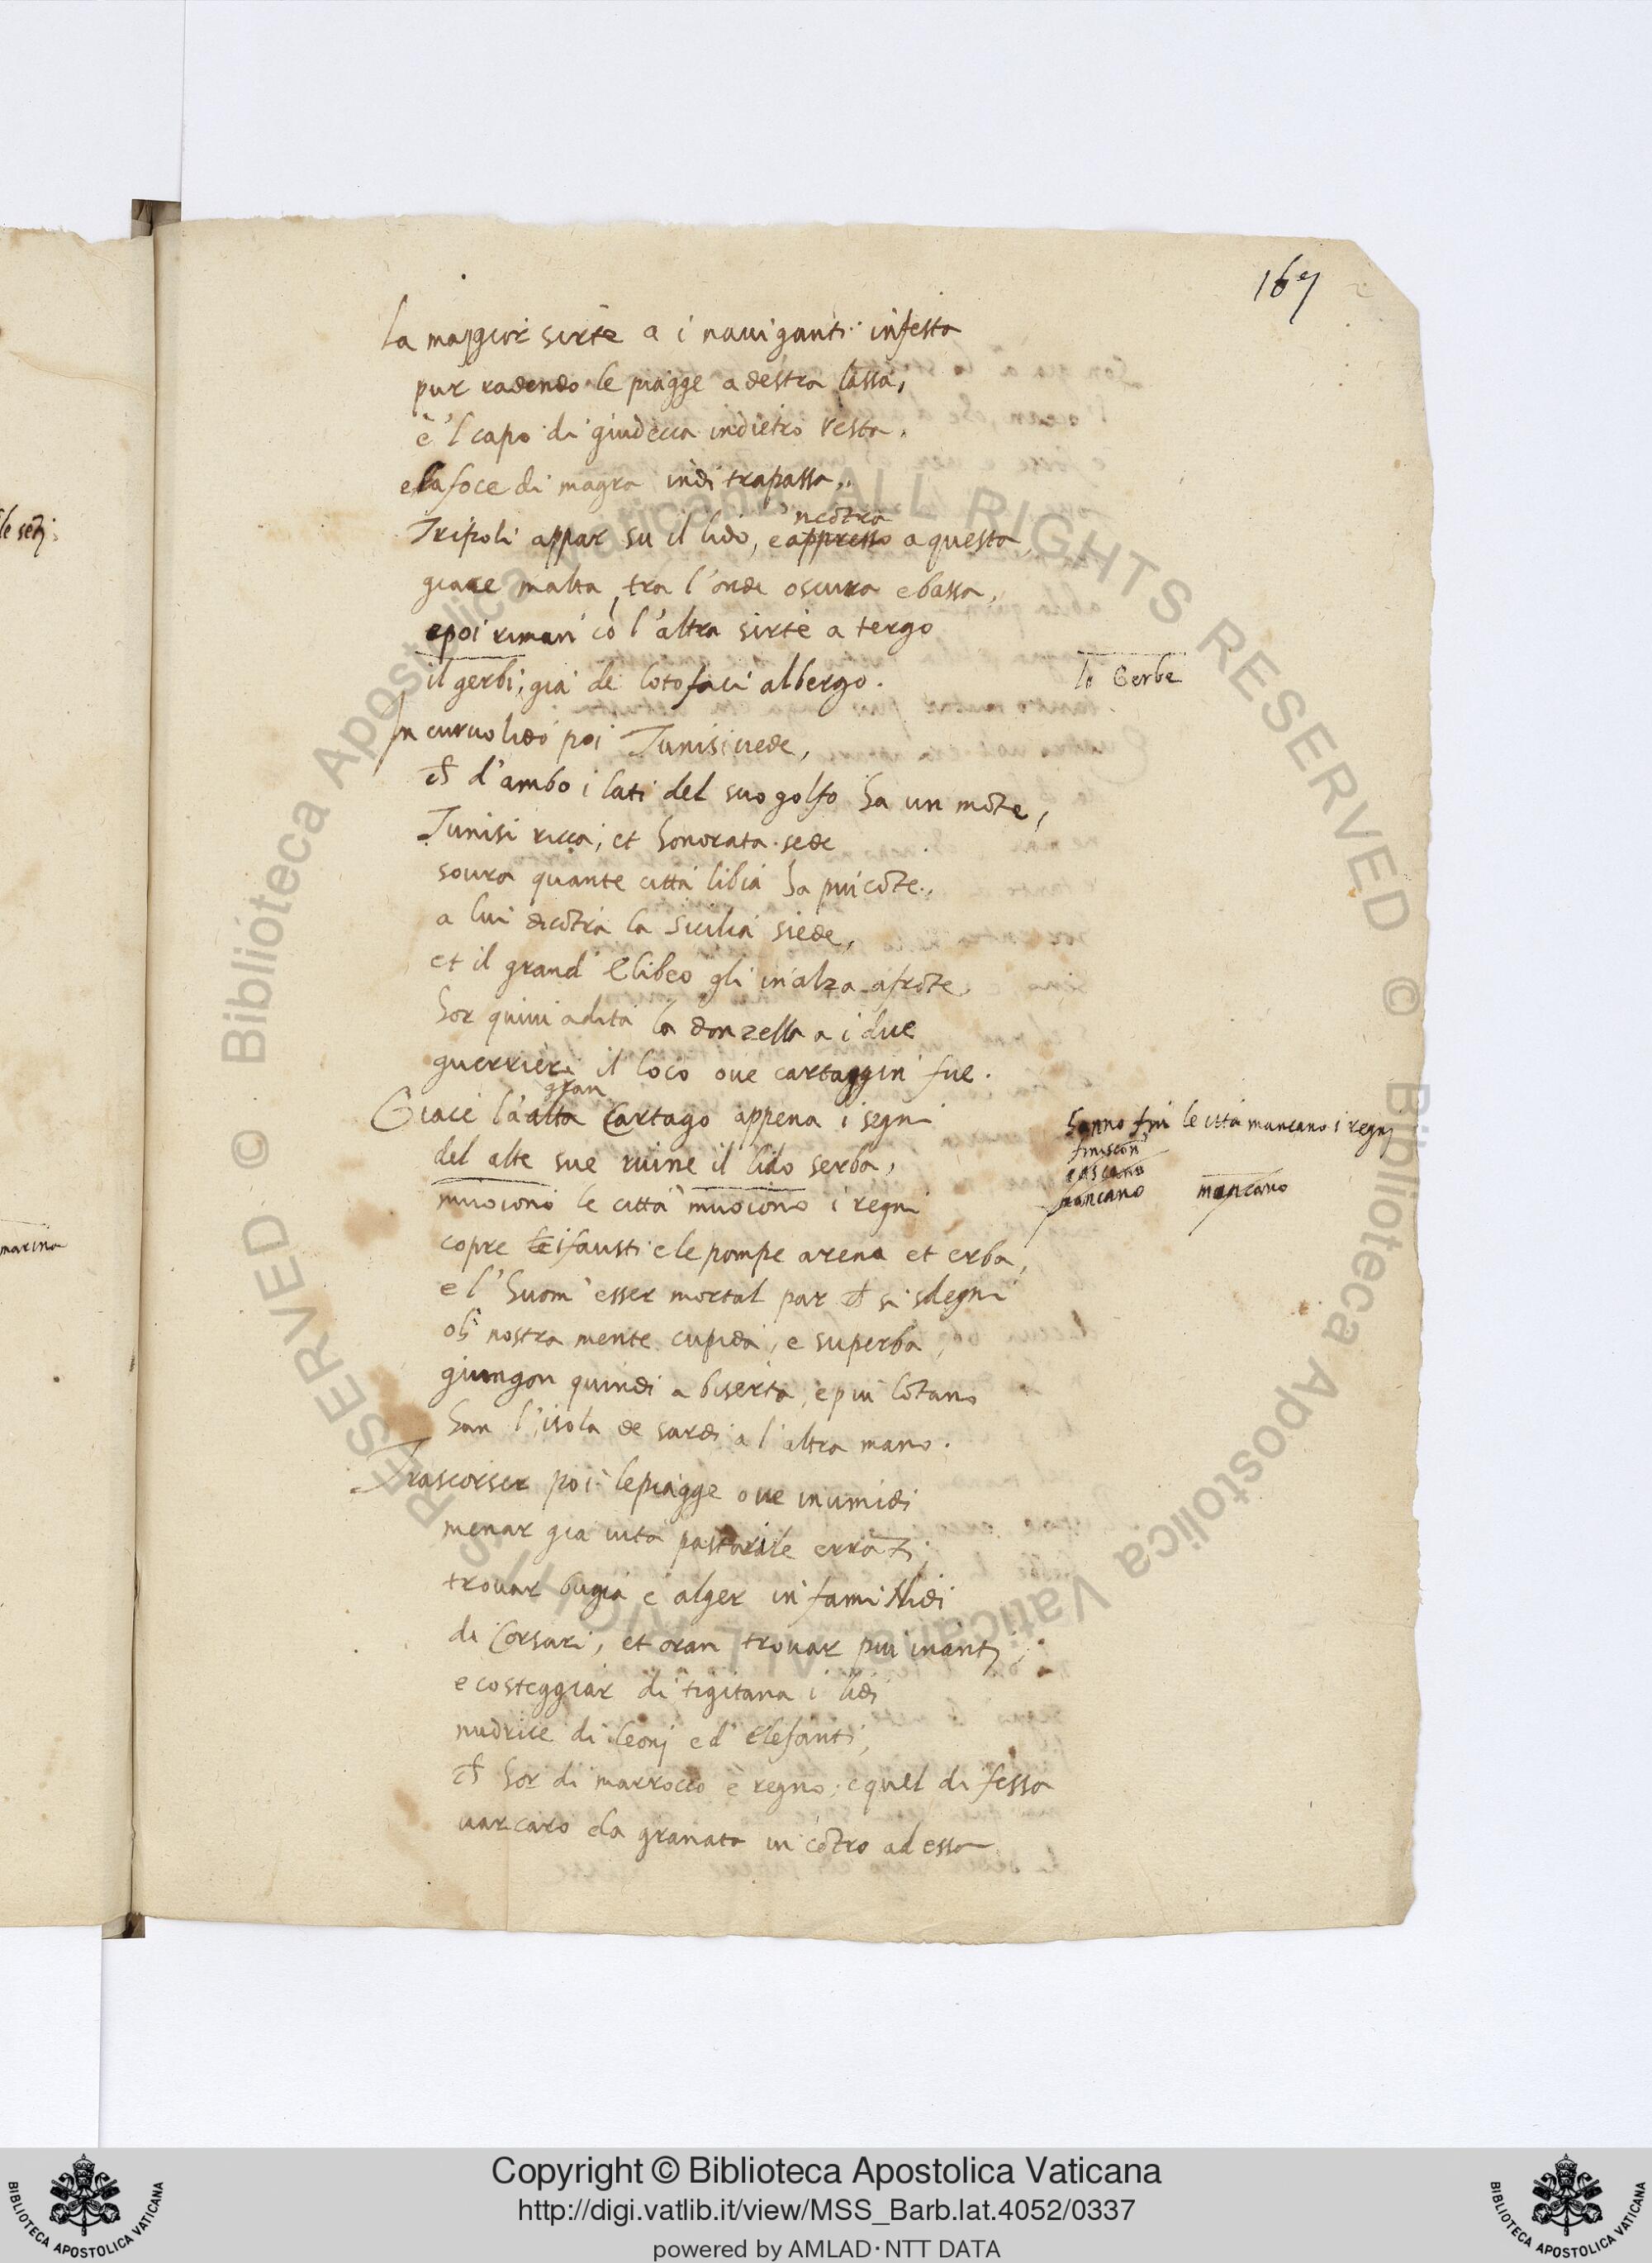 167
la maggior sirte a i naviganti infesta
pur radendo le piagge a destra lassa,
e 'l capo di giudecca indietro resta,
e la foce di magra indi trapassa.
ncōtra
Tripoli appar su il lido, e appresso a questa
giace malta tra l'onde oscura e bassa,
e poi riman cō l'altra sirte a tergo
il gerbi, già de lotofaci albergo.
lo Gerbe
In curvo lido poi Tunisi vede,
ch d'ambo i lati del suo golfo ha un mōte,
Tunisi ricca, et honorata sede
sovra quante città libia ha piu cōte.
a lui dicōtra la Sicilia siede,
et il grand' Elibeo gli inalza a frōte
hor quivi adita la donzella a i due
guerrieri il loco ove cartaggin fue.
gran
Giace l'alta Cartago appena i segni
del alte sue ruine il lido serba,
muoiono le città muoiono i regni
hanno fin le città mancano i regni
finiscon
cascano
mancano mancano
copre le i fausti e le pompe arena et erba,
e l'huom esser mortal par ch si sdegni
oh nostra mente cupida, e superba,
giungon quindi a biserta, e piu lōtano
han l'isola de sardi a l'altra mano.
Trascorser poi le piagge ove i numidi
menar già vita pastorale errāti,
trovar bugia e alger infami Nidi
di Corsari, et oran trovar piu inanti,
e costeggiar di tigitana i lidi
nudrice di leoni ed elefanti,
ch hor di marrocco è regno, e quel di fessa
varcaro ela granata in cōtro ad essa
le sēti
marina
© Biblioteca Apostolica Vaticana ALL RIGHTS RESERVED © Biblioteca Apostolica Vaticana ALL RIGHTS RESERVED
BIBLIOTECA APOSTOLICA VATICANA
Copyright © Biblioteca Apostolica Vaticana
http://digi.vatlib.it/view/MSS_Barb.lat.4052/0337
powered by AMLAD·NTT DATA
BIBLIOTECA APOSTOLICA VATICANA